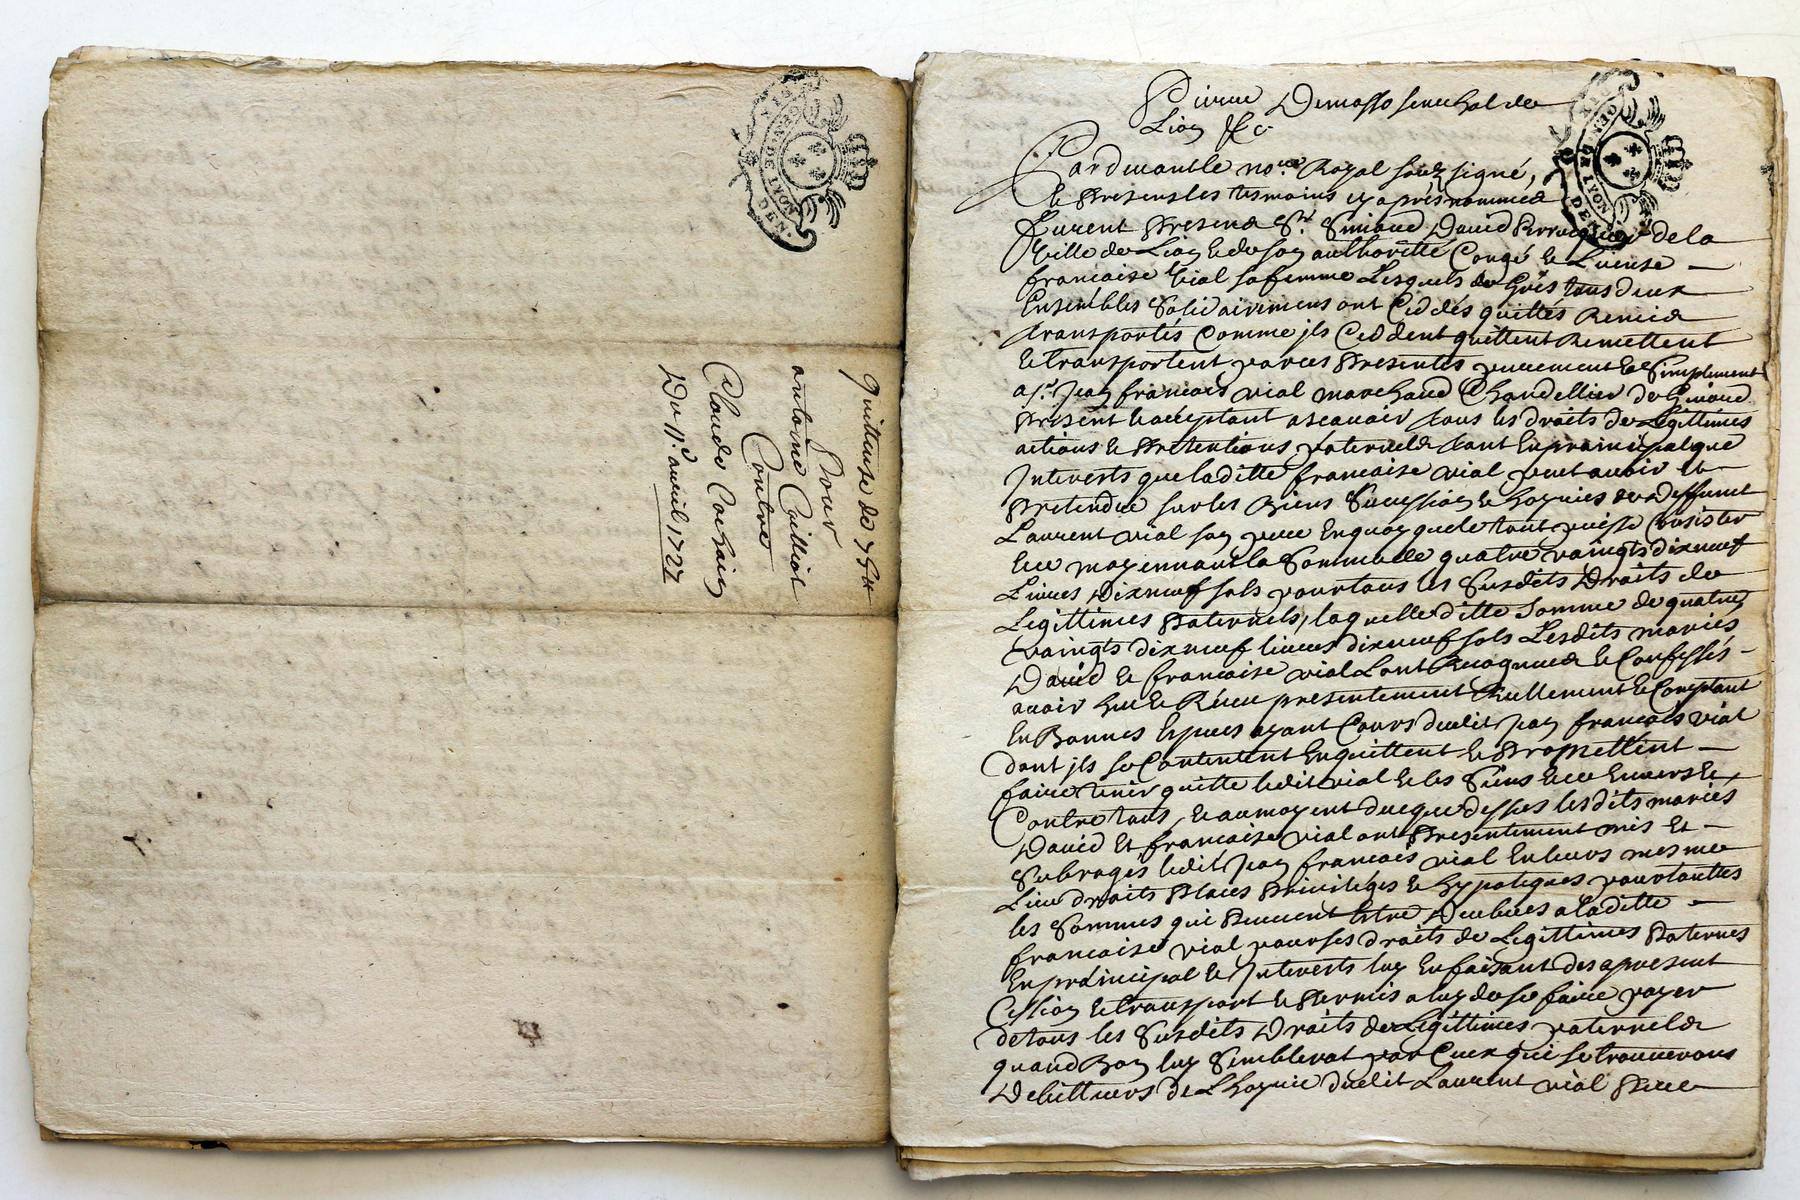 GEN DE LYON
quittance de 75#
Pour
antoine Cailliot
Contre
Claude Cochain
Du 11e auril 1727
GEN DE LYON
Pierre Demasso senechal de
Lion &c
Pardeuant le nore Royal souz signé,
Et Presens les tesmoins cy après nommez
furent Presens Sr David de la
Ville de Lion Et de son authorité Congé Et Licence
francoise Vial sa femme Lesquels de Grés tous deux
Ensembles Solidairement ont Ceddés quittés Remis
transportés Comme jls Ceddent quittent Remettent
Et transportent par ces Presentes purement Et Simplement
a sr Jean francois vial marchand Chandellier de
Present Et acceptant ascauoir tous les droits de Legittimes
actions Et Pretentions paternels tant En principal que
Interests que laditte francoise vial peut auoir Et
Pretendre sur les Biens Succession Et hoyries du deffunt
Laurent vial son pere En quoy que le tout puisse Consister
Et ce moyennant la Somme de quatre vaingts dixneuf
Liures Dixneuf sols pour tous les Susdits Droits de
Legittimes Paternels, laquelle ditte Somme de quatre
vaingts dixneuf liures dixneuf sols Lesdits mariés
Dauid Et francoise vial L'ont Et Confessés
auoir heu Et Receu presentement Reellement Et Comptant
En Bonnes Especes ayant Cours dudit Jean francois vial
dont jls se Contentent En quittent Et Promettent
faire tenir quitte ledit vial Et les Siens Et ce Enuers Et
Contre tous, Et au moyent du que dessus lesdits mariés
Dauid Et francoise vial ont Presentement mis Et
Subrogés ledit Jean francois vial En leurs mesme
Lieu droits Places Priuileges Et hypoteques pour toutes
les Sommes qui Peuuent Estre Deubues a laditte
francoise vial pour ses droits de Legittimes Paternes
En principal Et Interests luy En faisant des apresent
Cession Et transport Et Permis a luy de se faire payer
de tous les Susdits Droits de Legittimes paternels
quand Bon luy Semblerat par Ceux qui se trouueront
Debitteurs de L'hoyrie dudit Laurent vial Pere